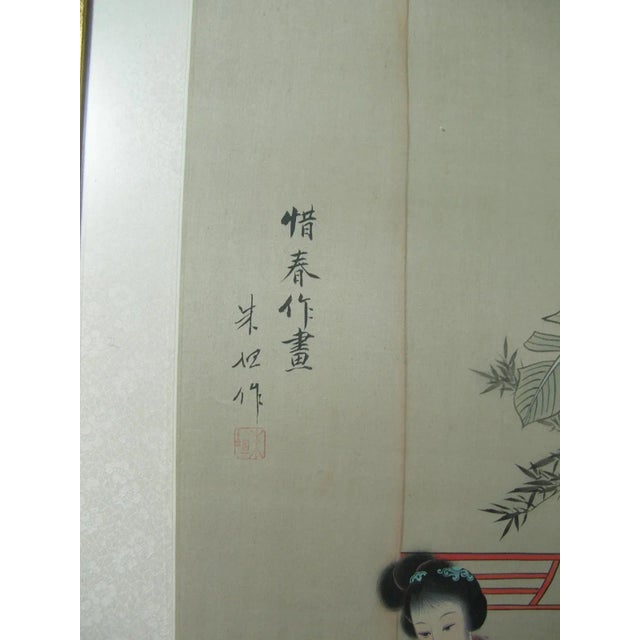 惜春作畫
朱恒作